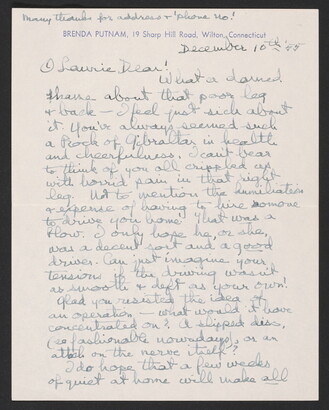 Many thanks for address & 'phone no!
BRENDA PUTNAM, 19 Sharp Hill Road, Wilton, Connecticut
December 10th '55
O Laurie Dear!
What a darned
shame about that poor leg
& back — I feel just sick about
it. You've always seemed such
a Rock of Gibraltar in health
and cheerfulness. I can't bear
to think of you all crippled up
with horrid pain in that right
leg. Not to mention the humiliation
& expense of having to hire someone
to drive you home! That was a
blow. I only hope he, or she,
was a decent sort and a good
driver. Can just imagine your
tension if the driving wasn't
as smooth & deft as your own!
Glad you resisted the idea of
an operation — what would it have
concentrated on? A slipped disc,
(so fashionable nowadays), or an
attack on the nerve itself?
I do hope that a few weeks
of quiet at home will make all